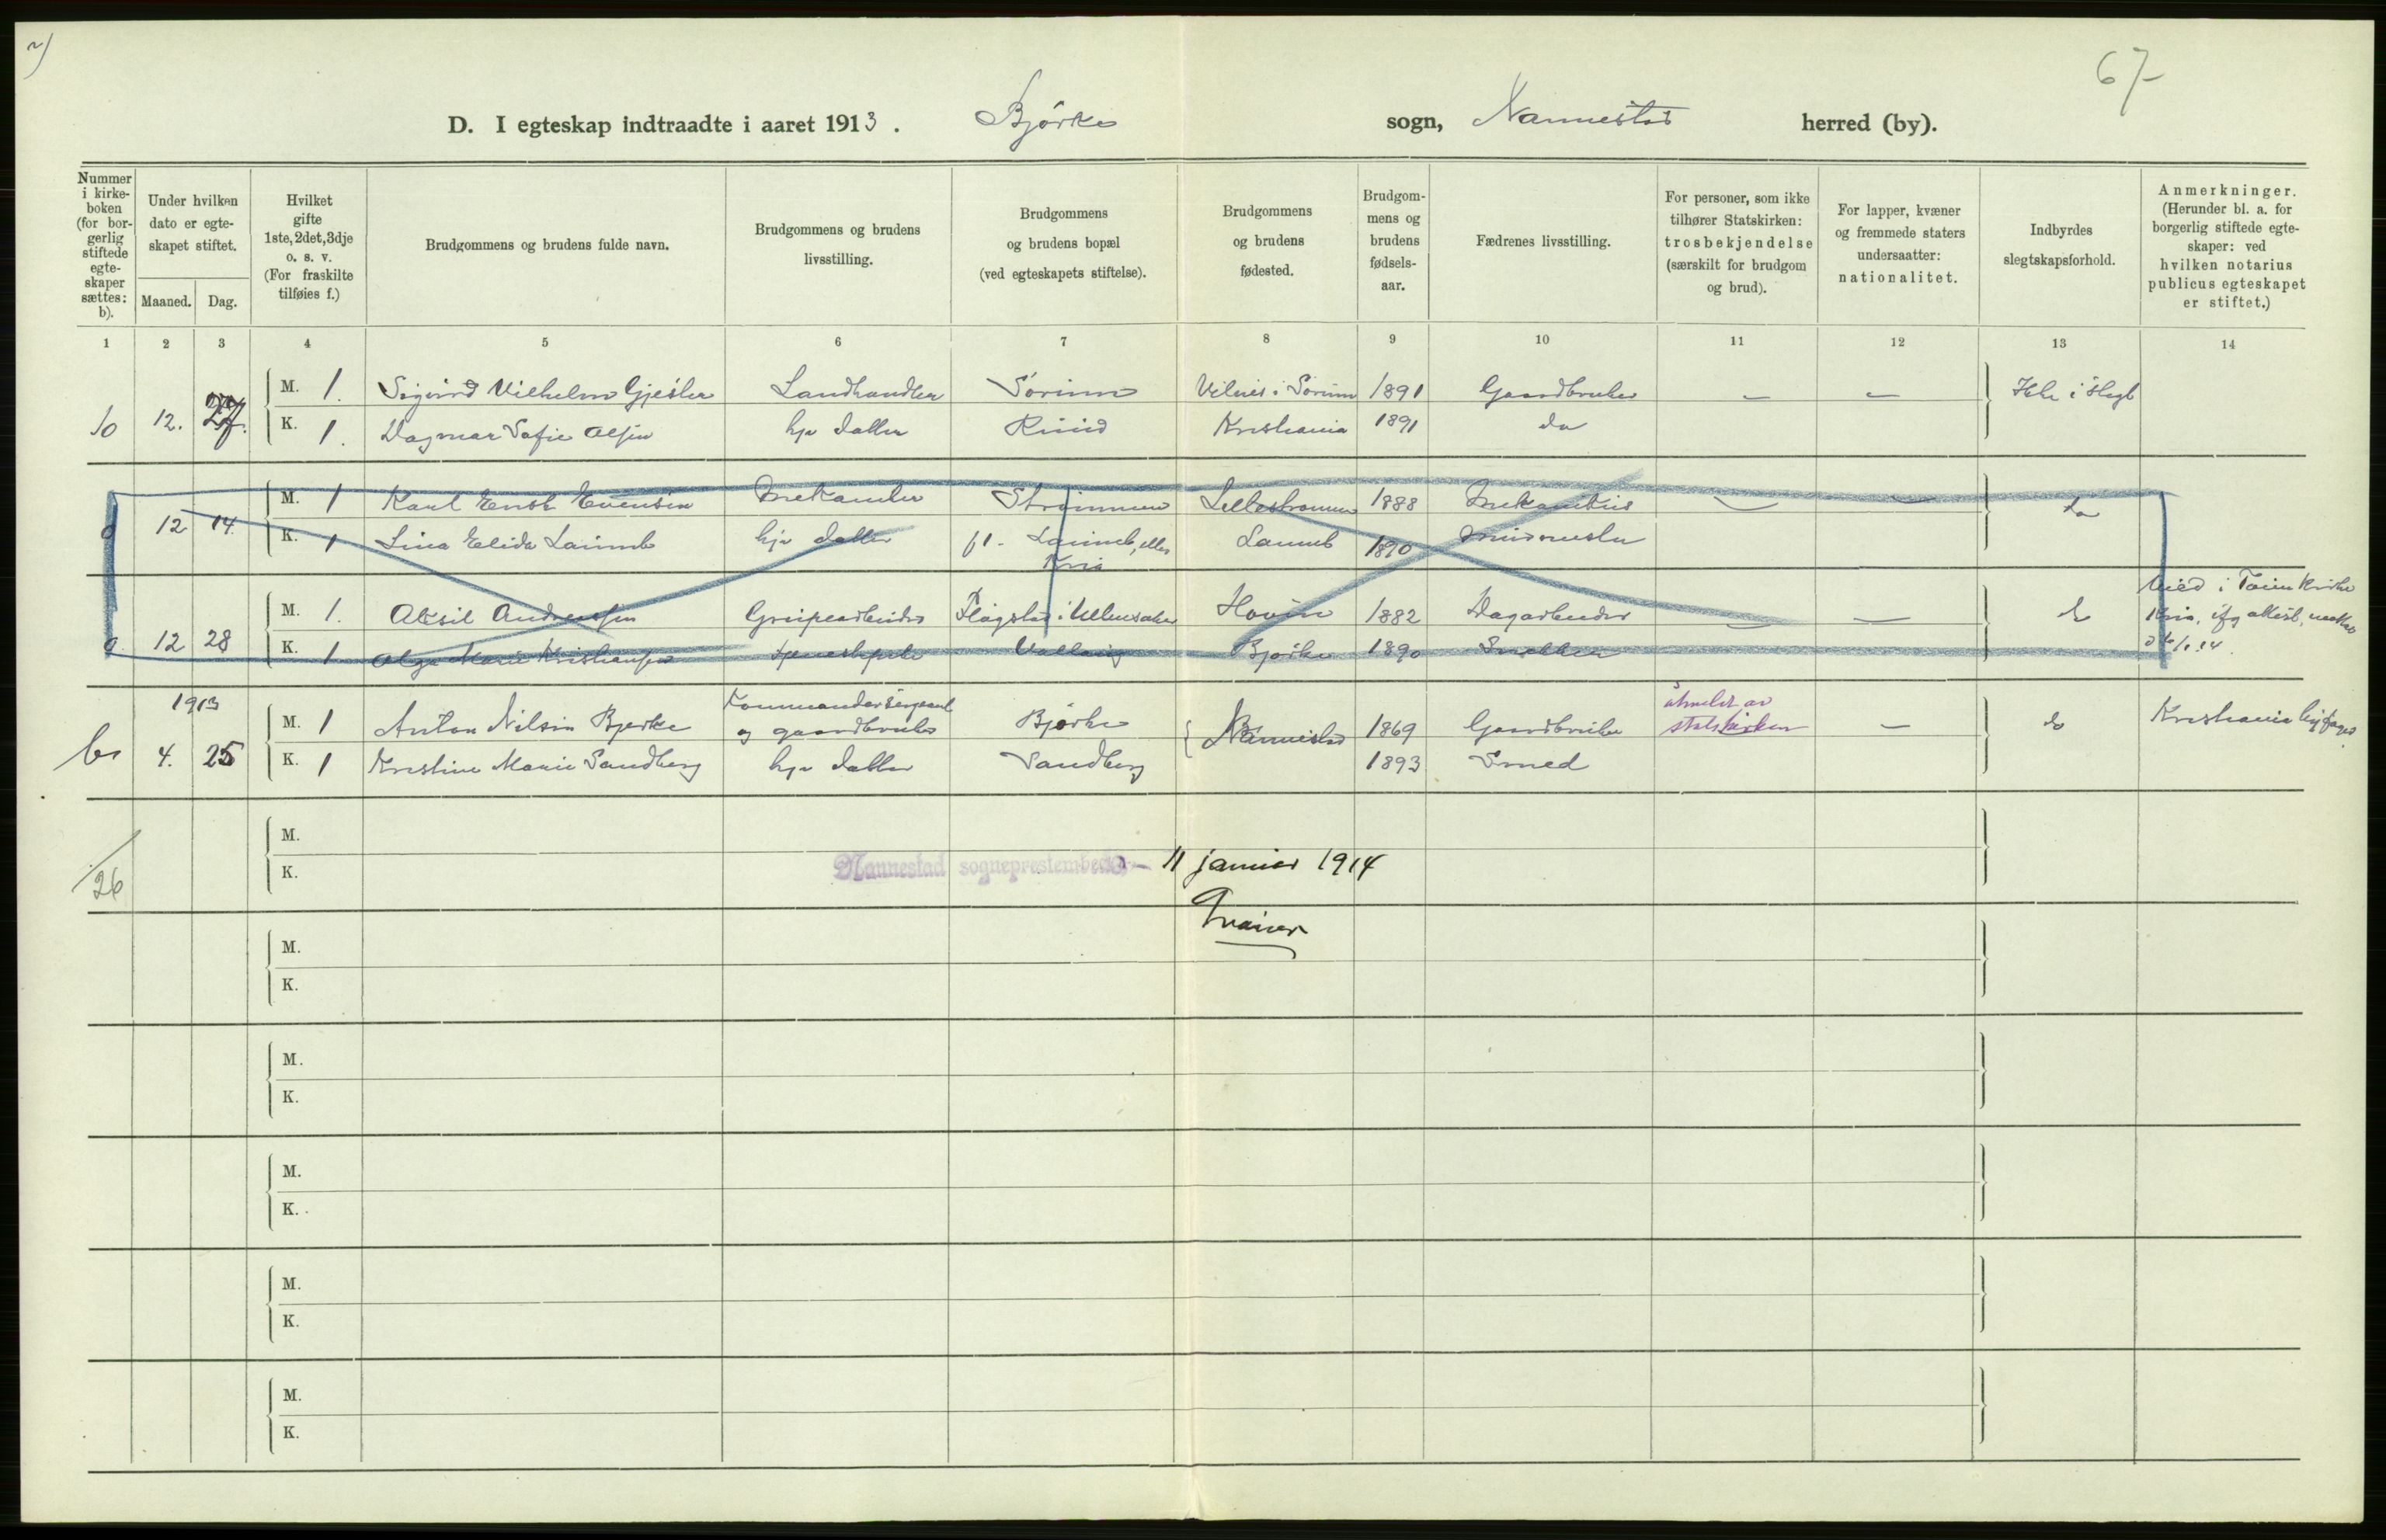 2)
67
D. I egteskap indtraadte i aaret 1913. Bjørke sogn, Nannestad herred (by).
Nummer i kirkeboken (for borgerlig stiftede egteskaper sættes: b).
Under hvilken dato er egteskapet stiftet.
Maaned. Dag.
Hvilket gifte 1ste, 2det, 3dje o. s. v. (For fraskilte tilføies f.)
Brudgommens og brudens fulde navn.
Brudgommens og brudens livsstilling.
Brudgommens og brudens bopæl (ved egteskapets stiftelse).
Brudgommens og brudens fødested.
Brudgommens og brudens fødselsaar.
Fædrenes livsstilling.
For personer, som ikke tilhører Statskirken: trosbekjendelse (særskilt for brudgom og brud).
For lapper, kvæner og fremmede staters undersaatter: nationalitet.
Indbyrdes slegtskapsforhold.
Anmerkninger. (Herunder bl. a. for borgerlig stiftede egteskaper: ved hvilken notarius publicus egteskapet er stiftet.)
1 2 3 4 5 6 7 8 9 10 11 12 13 14
M. 1. Sigurd Vilhelm Landhandler Sørum i Sørum 1891 Gaardbruker — — Ikke i slegt
10 12. 27. K. 1. Dagmar Sofie Olsen hjv datter Kristiania 1891 do
M. 1 Karl Ernst Evensen Strømmen Lillestrømmen 1888 — — do
0 12 14 K. 1 Lina Elida hjv datter 1890
Kria
M. 1. Aksil Andreassen i Ullensaker Hovin 1882 Dagarbeider — — do Viéd i kirke
Kria,
0 12 28 K. 1 Olga Marie Kristiansen Bjørke 1890 Snekker
1913
Kommandersergeant utmeldt av
M. 1 Anton Nilsen Bjerke og gaardbruker Bjørke Nannestad 1869 Gaardbruker statskirken — do Kristiania byfoged.
b1 4. 25 K. 1 Kristine Marie Sandberg hjv datter Sandberg 1893 Smed
M.
26 K.
Nannestad sogneprestembede — 11 januar 1914
M.
K.
M.
K.
M.
K.
M.
K.
M.
K.